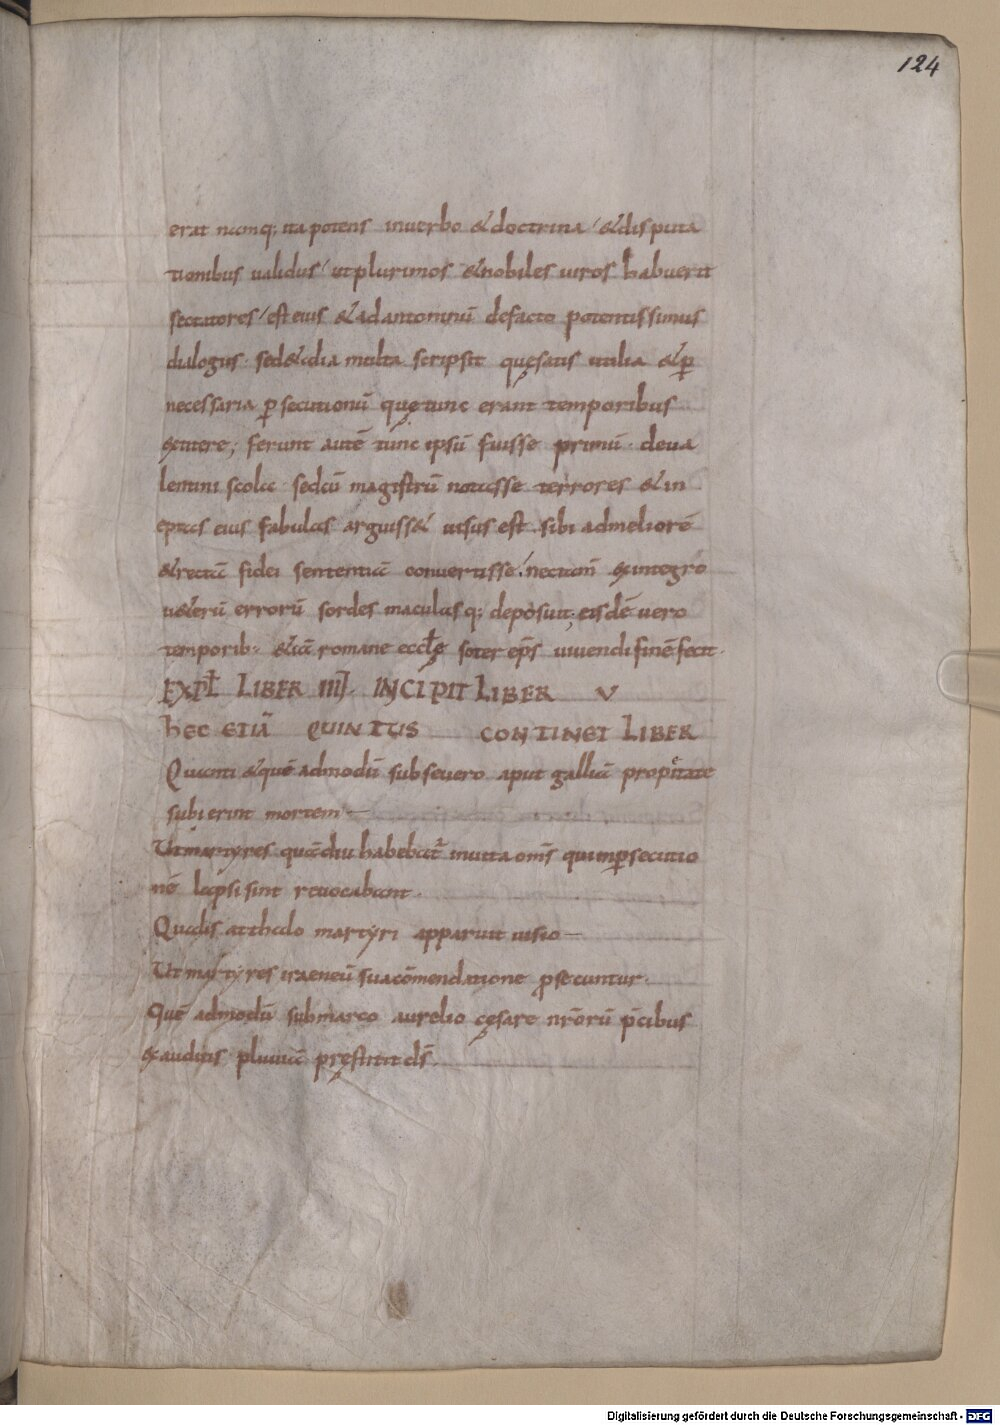 124
erat namq; ita potens inuerbo &doctrina / &disputa
tionibus ualidus / ut plurimos &nobiles uiros habuerit
sectatores / est eius &adantoninū defacto potentissimus
dialogus. sed&alia multa scripsit quęsatis utilia &ꝑ
necessaria ꝑsecutionū quętunc erant temporibus
extitere; ferunt autē tunc ipsū fuisse primū. deua
lentini scola sedcū magistrū notasse terrores &in
eptas eius fabulas arguiss& uisus est. sibi admeliorē
&rectā fidei sententiā conuertisse. necnam exintegro
u&erū errorū sordes maculasq; deposuit; eisdē uero
temporib: &iā romane eccłę soter ep̄s uiuendi finē fecit.
EXPŁ LIBER IIII. INCIPIT LIBER V
hEC ETIĀ QUINTUS CONTINET LIBER
Quanti &quē admodū subseuero aput galliā propi&ate
subierint mortem
Ut martyres quādiu habebat᷑ inuita om̄s quinꝑsecutio
nē lapsi sint reuocabant.
Qualis atthalo martyri apparuit uisio
Ut martyres iraeneū suacōmendatione ꝓsecuntur.
Quē admodū submarco aurelio cęsare nr̄orū p̄cibus
exauditis pluuiā pręstitit d̄s.
Digitalisierung gefördert durch die Deutsche Forschungsgemeinschaft - DFG